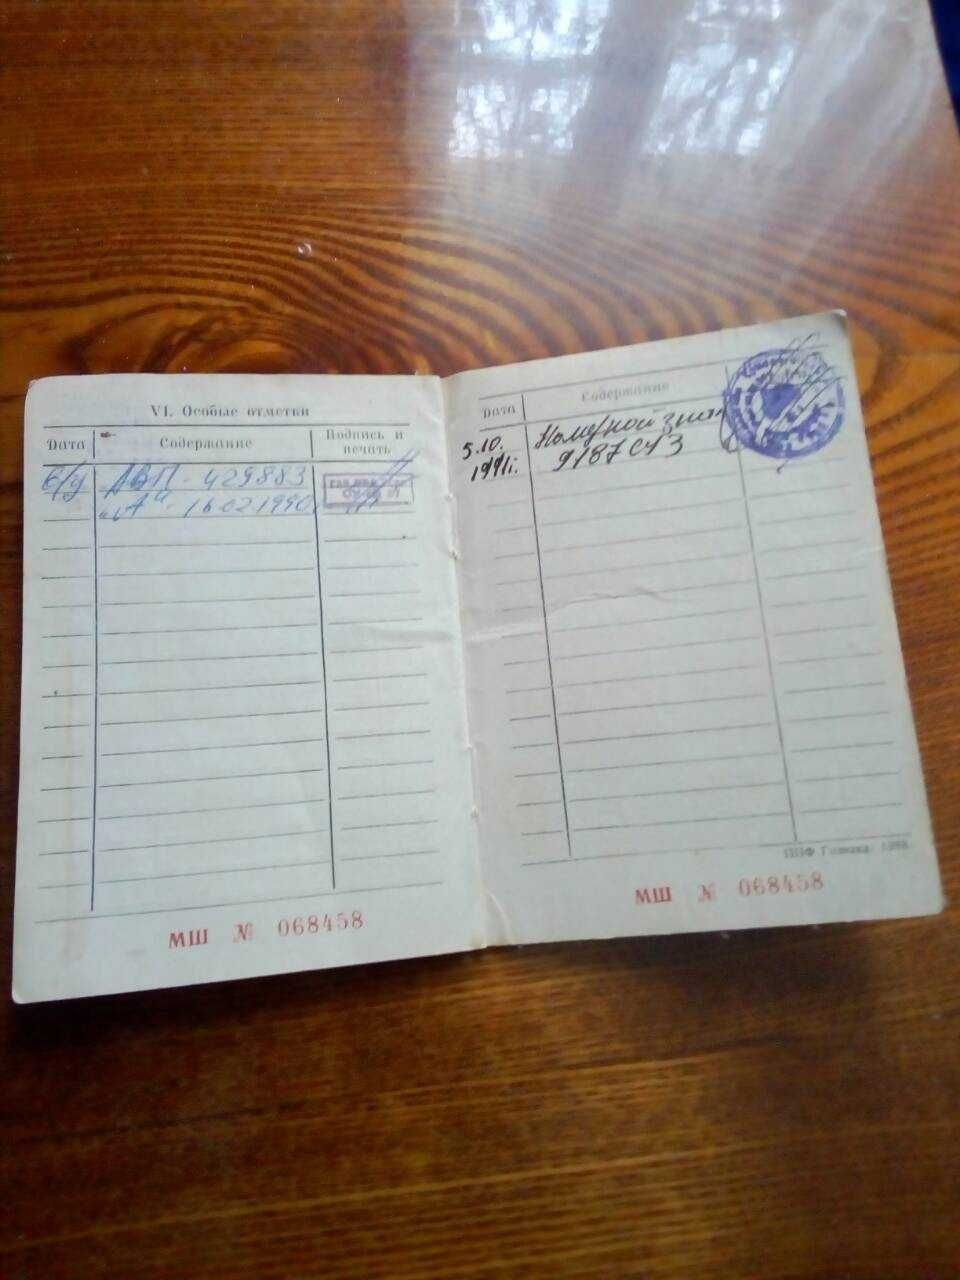 VI. Особые отметки
Дата Содержание Подпись и печать
б/у АВП - 429883
"А" - 16.02.1990
МШ № 068458
Дата Содержание
5.10. Номерной знак
1991г. 9187СЧЗ
1988
МШ № 068458